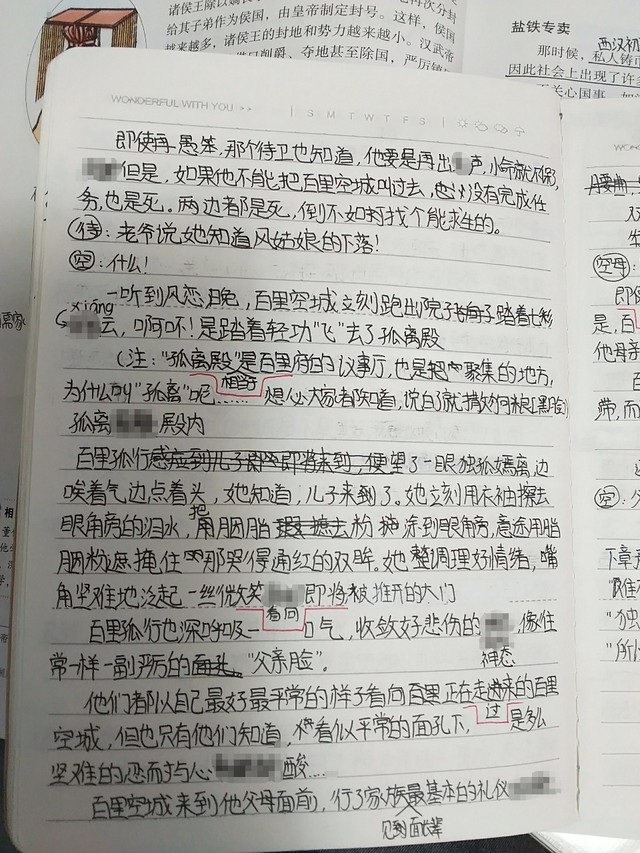 诸侯王除以嫡长
再次分封
给其子弟作为侯国，由皇帝制定封号。这样，侯国
越来越多，诸侯王的封地和势力越来越小。汉武帝
削爵、夺地甚至除国，严厉镇
盐铁专卖
西汉初
那时候，私人铸币
因此社会上出现了许多
关心国事
WONDERFUL WITH YOU >>
S M T W T F S
即使再愚笨，那个侍卫也知道，他要是再出声，小命就不保，
但是，如果他不能把百里空城叫过去，也没有完成任
务，也是死，两边都是死，倒不如找个能求生的。
侍：老爷说，她知道风姑娘的下落！
空：什么！
一听到风恋晚，百里空城立刻跑出院子踏着七彩
xiáng
云，啊呸！是踏着轻功"飞"去了孤离殿
（注："孤离殿"是百里府的议事厅，也是把聚集的地方，
相守
为什么叫"孤离"呢……想必大家都知道，说白了就撒狗粮[黑脸]
孤离殿内
百里孤行感应到儿子即将来到，便望了一眼独孤嫣离，边
唉着气边点着头，她知道，儿子来到了。她立刻用衣袖擦去
眼角旁的泪水，把用胭脂粉涂到眼角旁，意途用胭
胭粉遮掩住那哭得通红的双眸。她整调理好情绪，嘴
角坚难地泛起一丝微笑看向即将被推开的大门
百里孤行也深呼吸一口气，收敛好悲伤的神态，像往
常一样一副严厉的面孔"父亲脸"。
他们都以自己最好最平常的样子看向正在走过来的百里
空城，但也只有他们知道，看似平常的面孔下，是多么
坚难的忍而与心酸……
百里空城来到他父母面前，行了家族最基本的礼仪
见到面长辈
腰曲
空母：
即使
是，百
他母亲
带，而
空：
下章
"唯
"独
"所